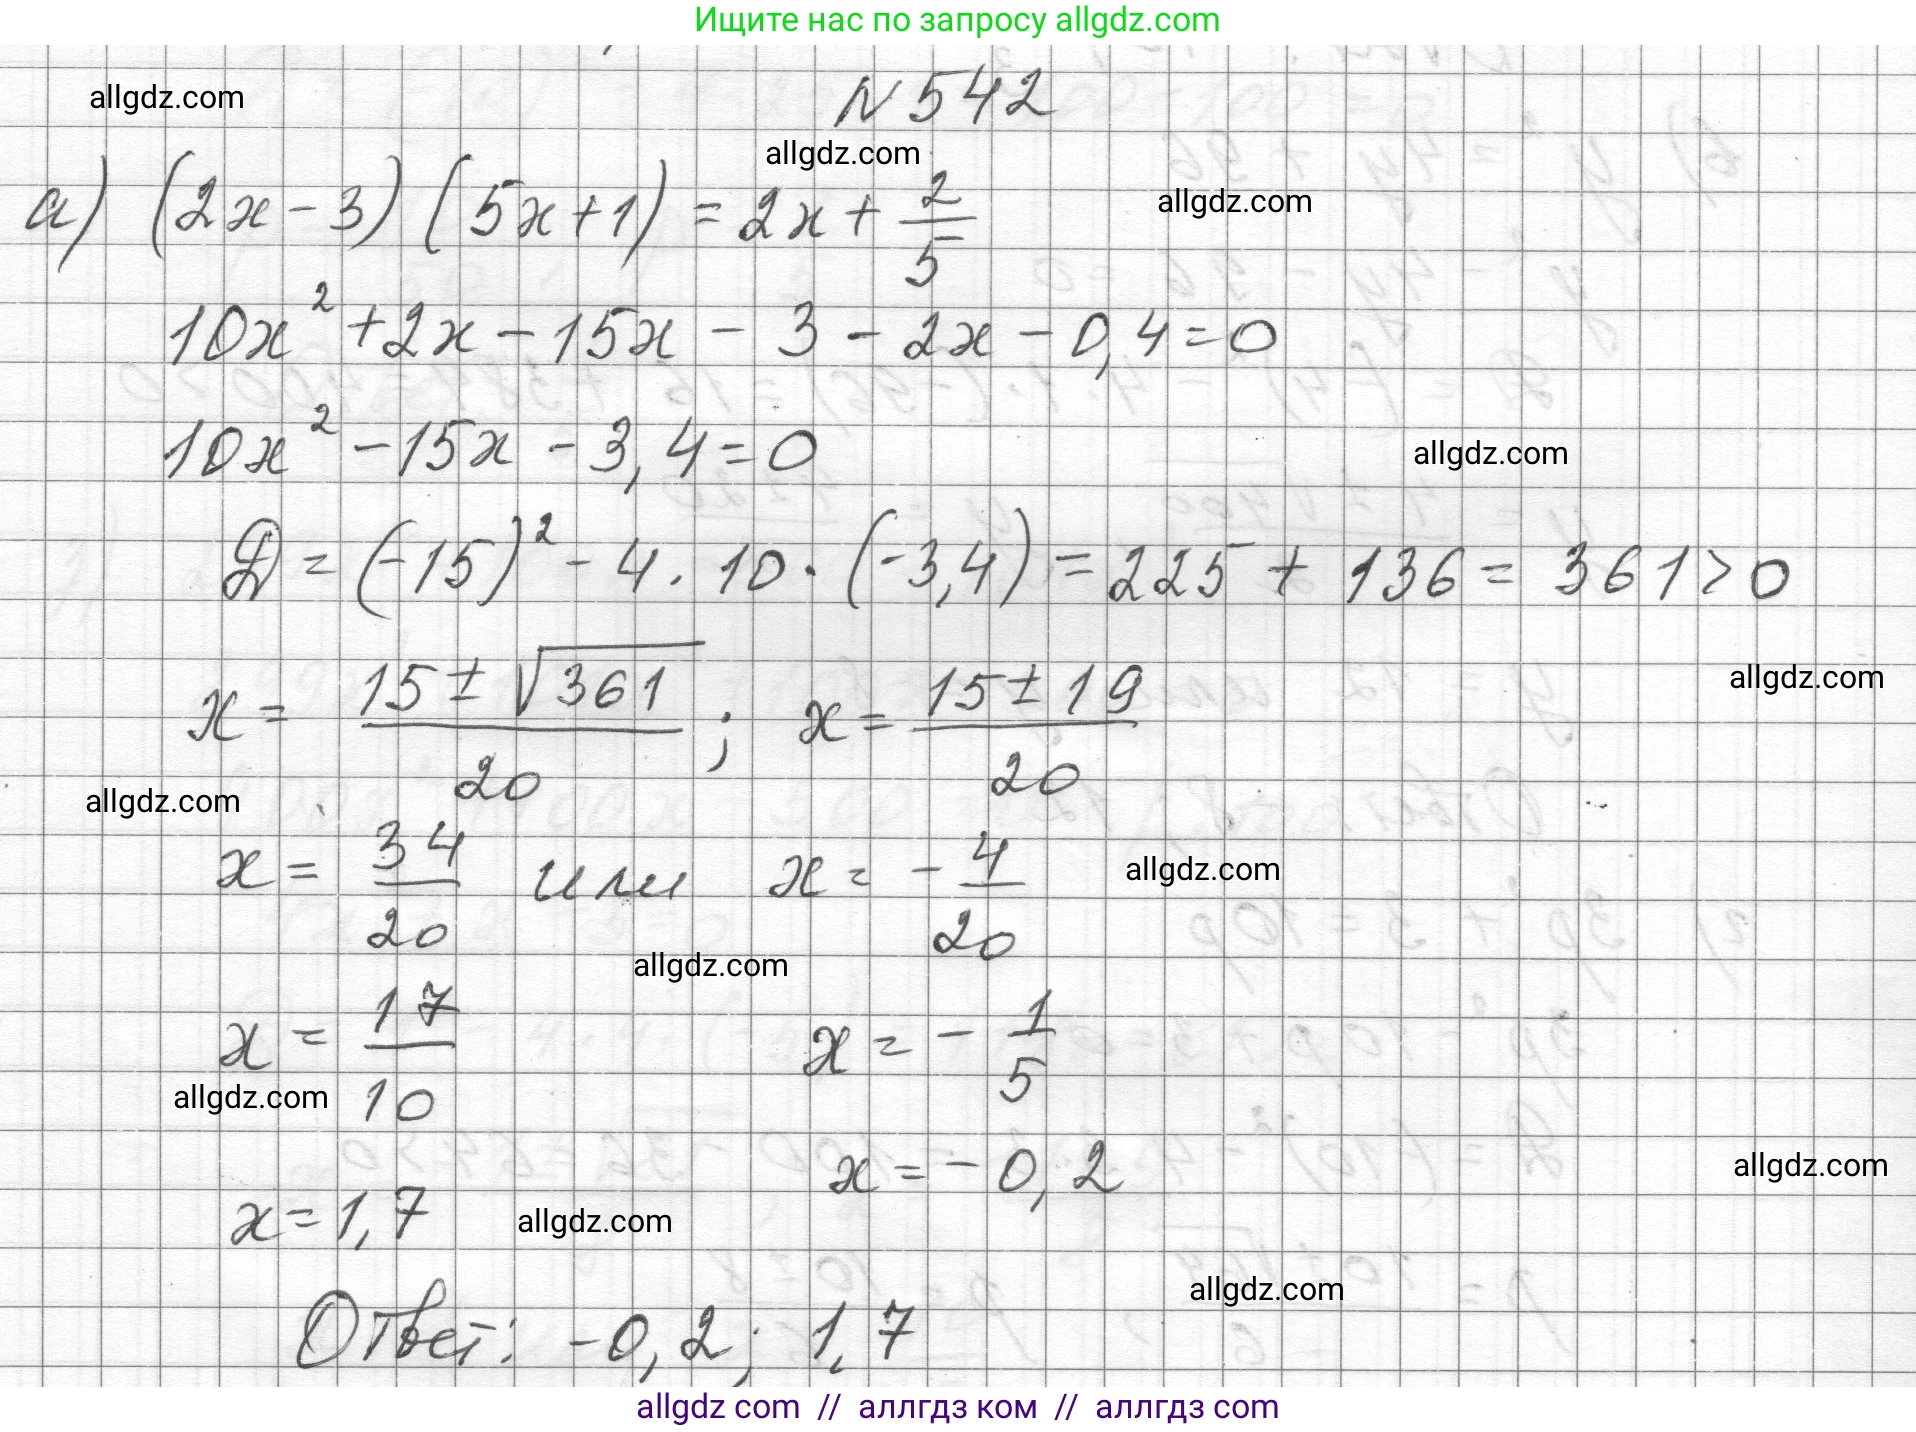 Ищите нас по запросу allgdz.com
N 542
allgdz.com
allgdz.com
а) (2x - 3) (5x + 1) = 2x + 2/5
allgdz.com
10x² + 2x - 15x - 3 - 2x - 0,4 = 0
10x² - 15x - 3,4 = 0
allgdz.com
D = (-15)² - 4 · 10 · (-3,4) = 225 + 136 = 361 > 0
x = (15 ± √361)/20 ; x = (15 ± 19)/20
allgdz.com
allgdz.com
x = 34/20 или x = - 4/20
allgdz.com
allgdz.com
x = 17/10 x = - 1/5
allgdz.com
x = 1,7 x = - 0,2
allgdz.com
allgdz.com
allgdz.com
Ответ: -0,2; 1,7
allgdz com // аллгдз ком // аллгдз com